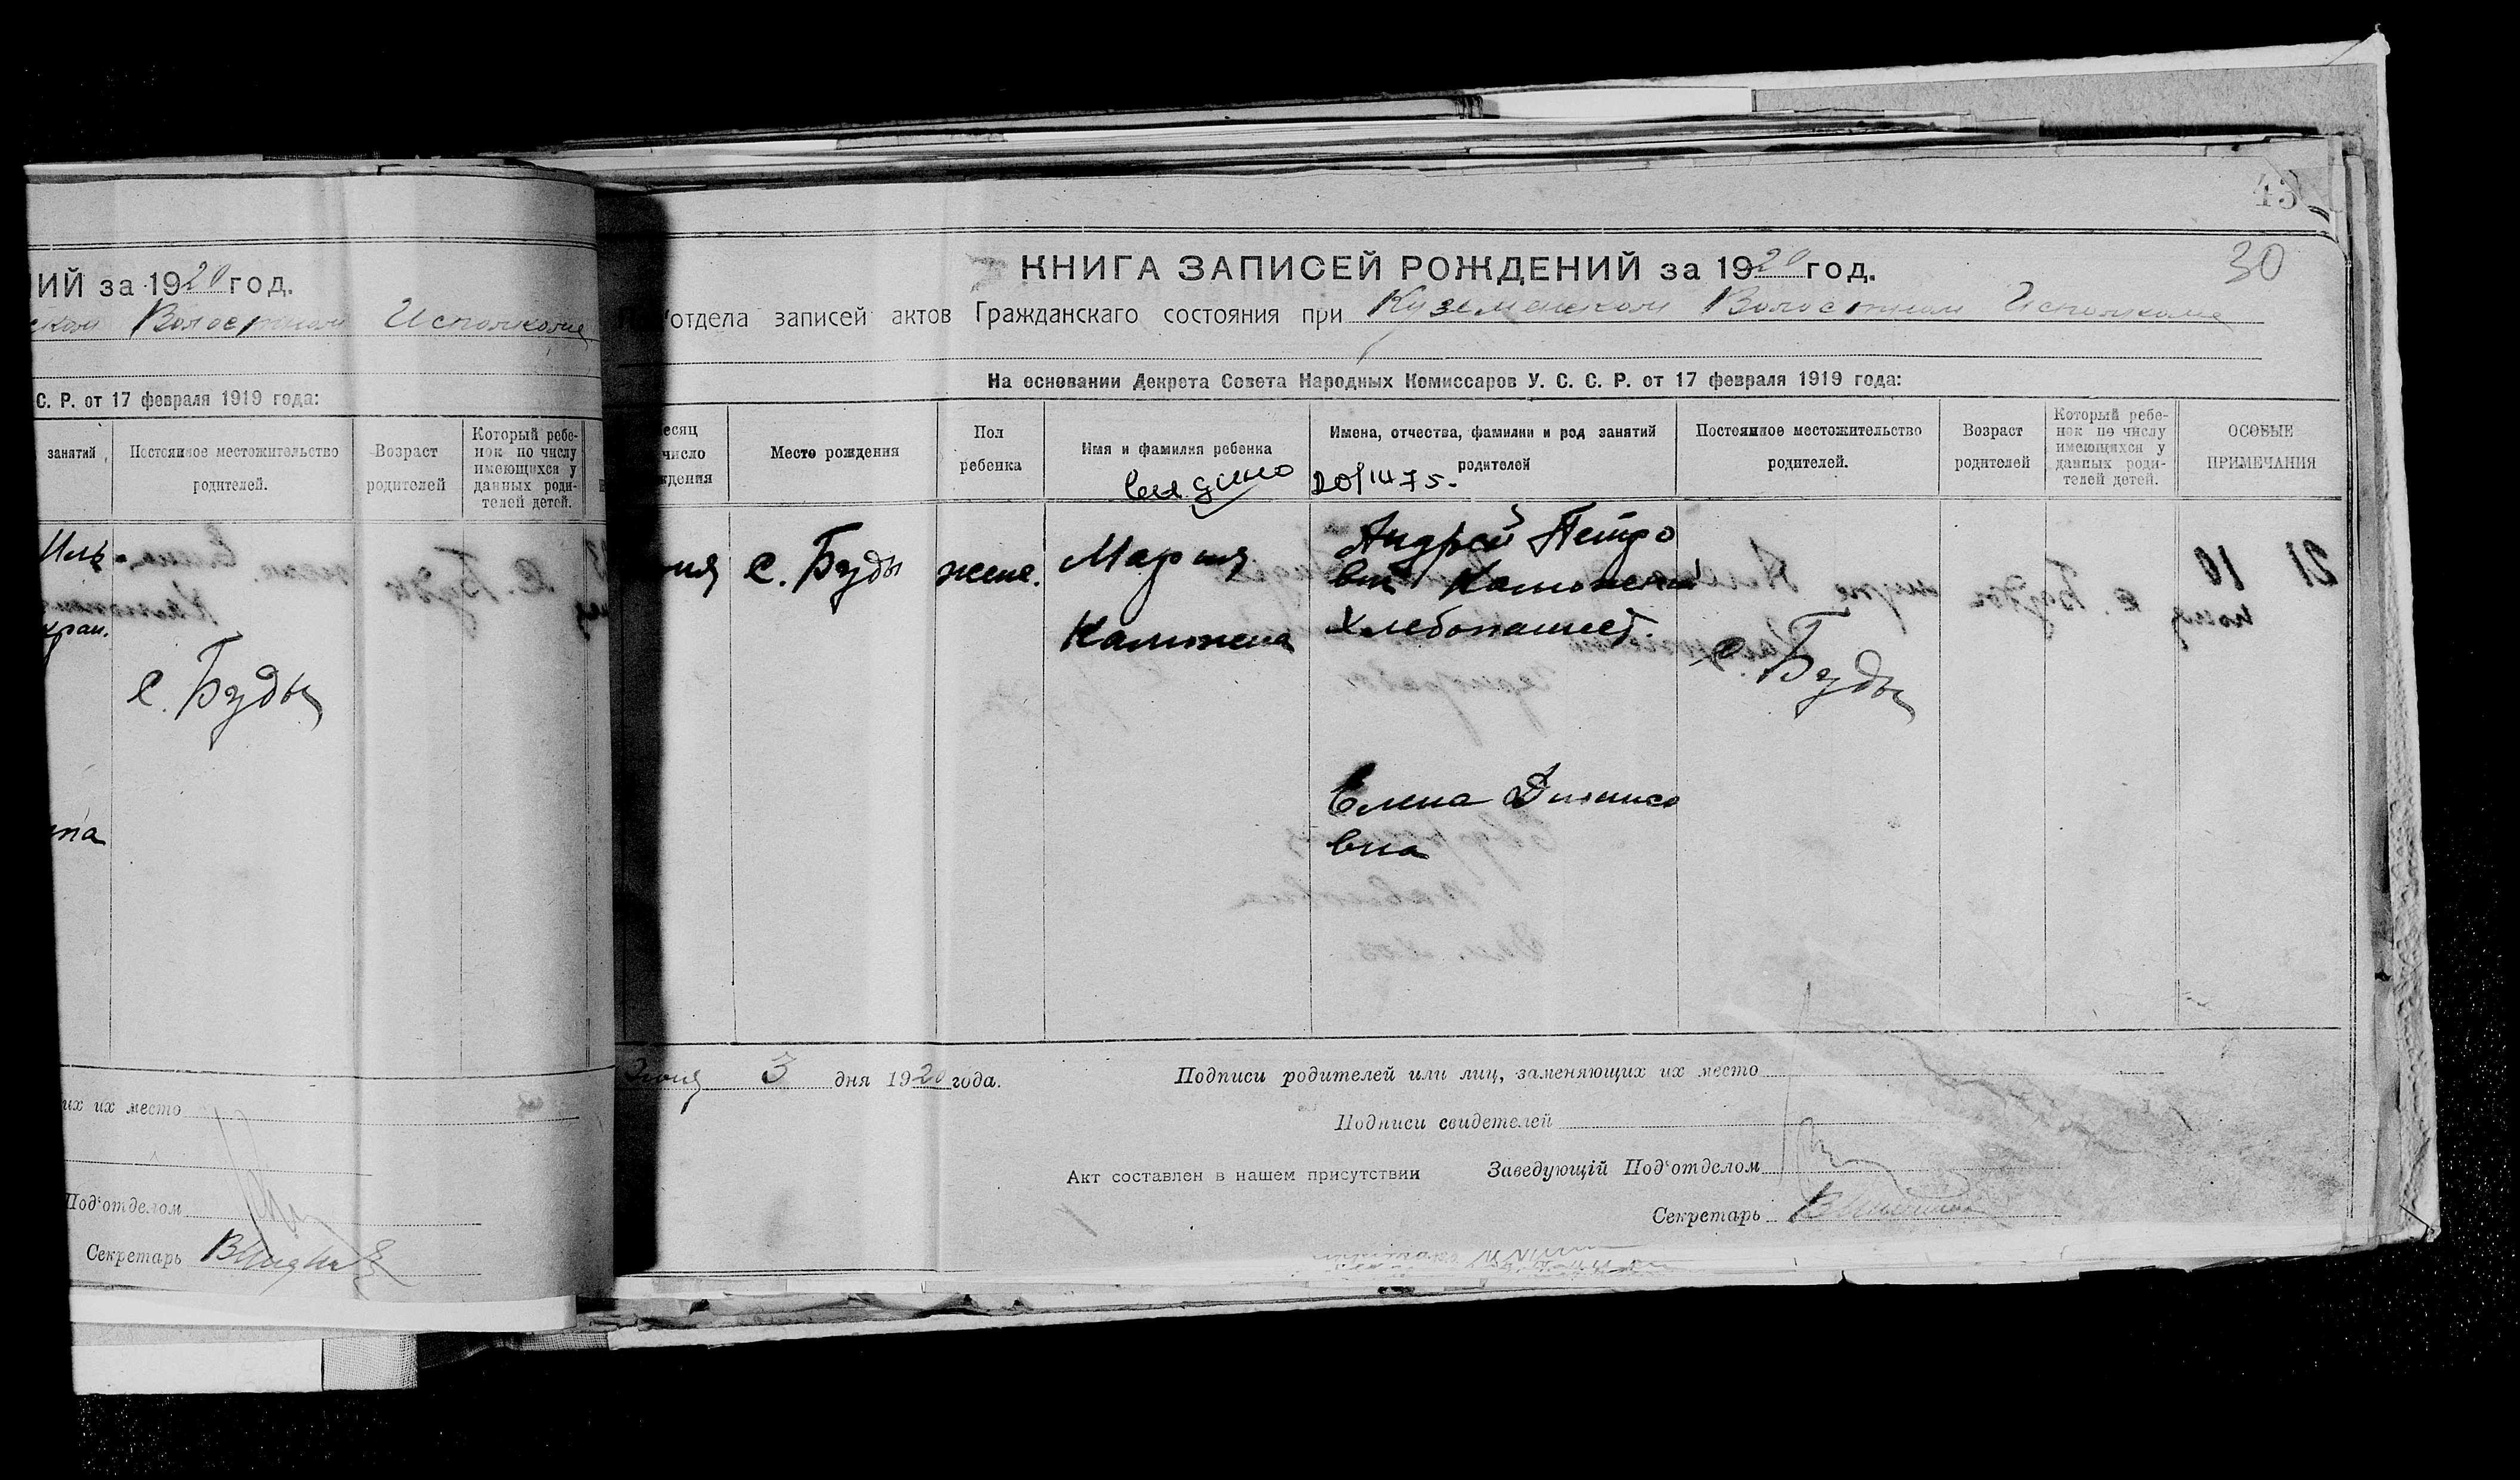 ИЙ за 1920 год.
ском Волостном Исполкоме
С. Р. от 17 февраля 1919 года:
занятий
Постоянное местожительство
родителей.
Возраст
родителей
Который ребе-
нок по числу
имеющихся у
данных роди-
телей детей.
с. Буды
на
их их место
Под'отделом
Секретарь
43
30
КНИГА ЗАПИСЕЙ РОЖДЕНИЙ за 1920 год.
отдела записей актов Гражданскаго состояния при Куземенском Волостном Исполкоме
На основании Декрета Совета Народных Комиссаров У. С. С. Р. от 17 февраля 1919 года:
есяц
число
ждения
Место рождения
Пол
ребенка
Имя и фамилия ребенка
Имена, отчества, фамилии и род занятий
родителей
Постоянное местожительство
родителей.
Возраст
родителей
Который ребе-
нок по числу
имеющихся у
данных роди-
телей детей.
ОСОБЫЕ
ПРИМЕЧАНИЯ
ня
с. Буды
женс.
Мария
Андрей Петро
вич
Хлебопашест.
с. Буды
Елена Дионисо
вна
Июня 3 дня 1920 года.
Подписи родителей или лиц, заменяющих их место
Подписи свидетелей
Акт составлен в нашем присутствии
Заведующій Под'отделом
Секретарь